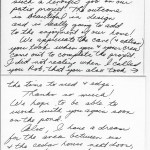 such a lovely job on our
patio project. The outcome
is beautiful in design
and really going to add
to the enjoyment of our home.
We appreciate the care taken
you took when you & your crew
came out to complete the project.
I did not realize when I called
you both that you each took
the time to need & edge.
Thanks so much.
We hope to be able to
work with you again soon
on the pond.
Also I have a dream
for the area between us
& the cedar house next door.